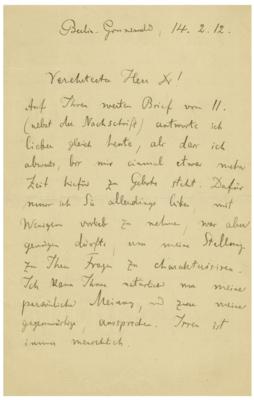 Berlin-Grunewald, 14.2.12.
Verehrtester Herr X!
Auf Ihren werten Brief vom 11.
(nebst der Nachschrift) antworte ich
lieber gleich heute, als dass ich
abwarte, bis mir einmal etwas mehr
Zeit hiefür zu Gebote steht. Dafür
muss ich Sie allerdings bitten mit
Wenigem vorlieb zu nehmen, was aber
genügen dürfte, um meine Stellung
zu Ihren Fragen zu charakterisieren.
Ich kann Ihnen natürlich nur meine
persönliche Meinung, und zwar meine
gegenwärtige, aussprechen. Irren ist
immer menschlich.